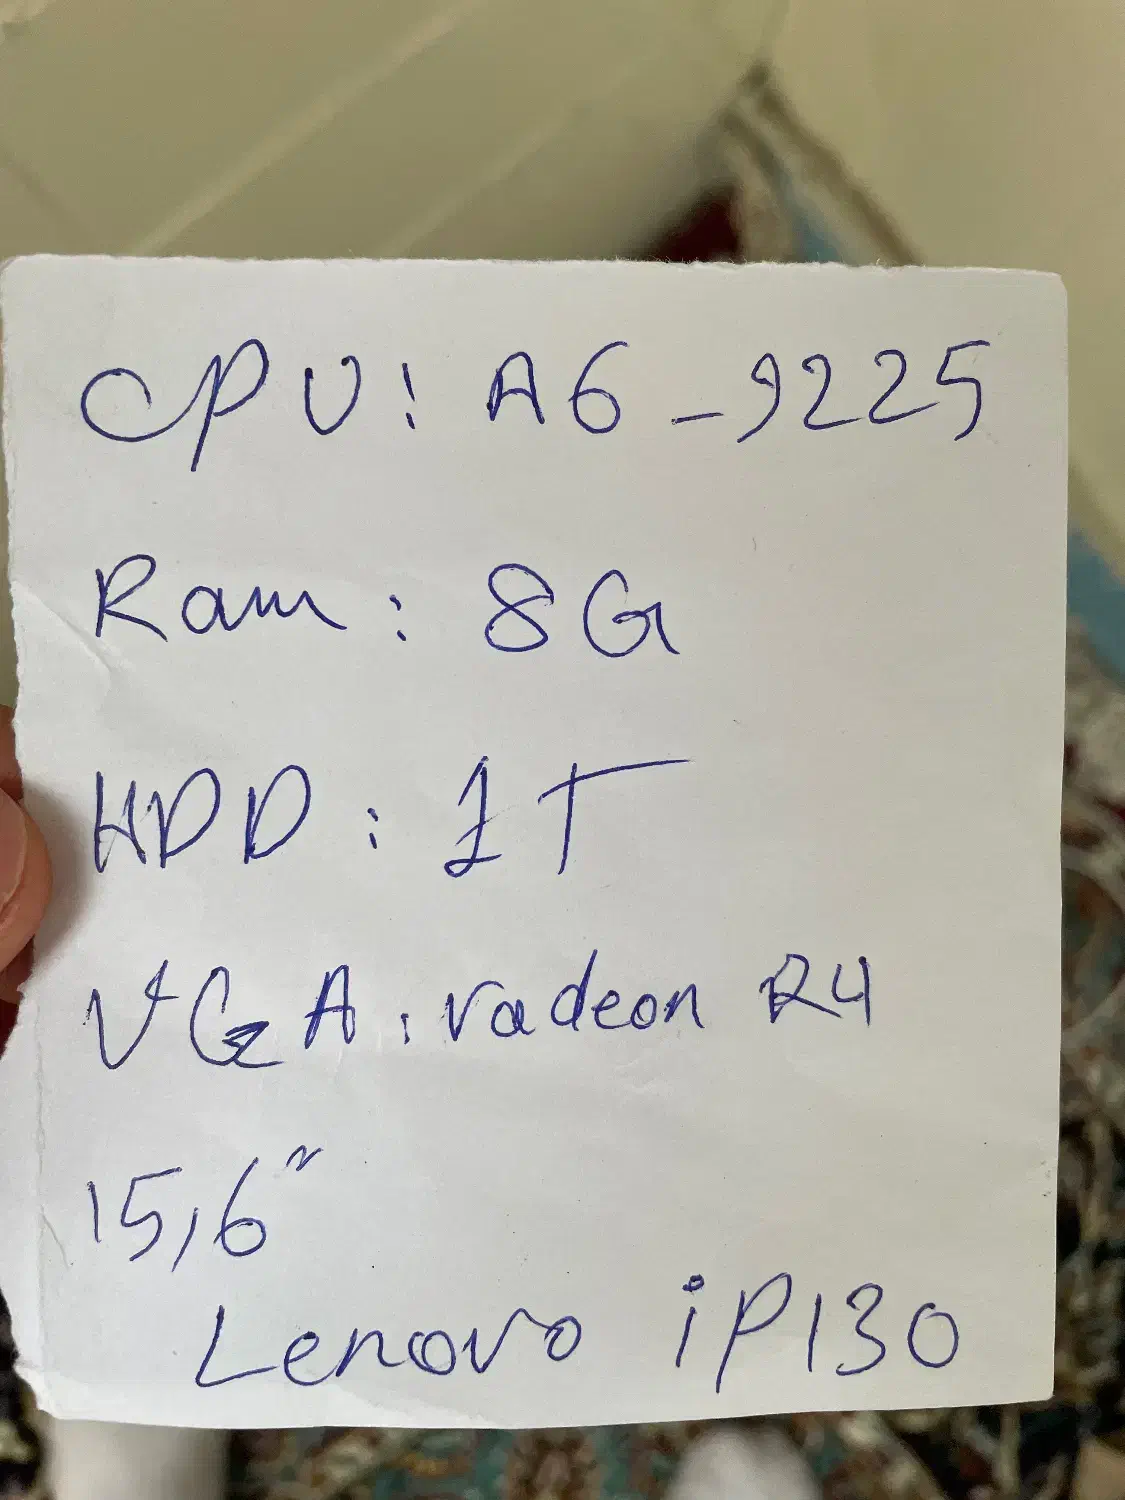 CPU: A6-9225
Ram: 8G
HDD: 1T
VGA: radeon R4
15,6"
Lenovo iP130